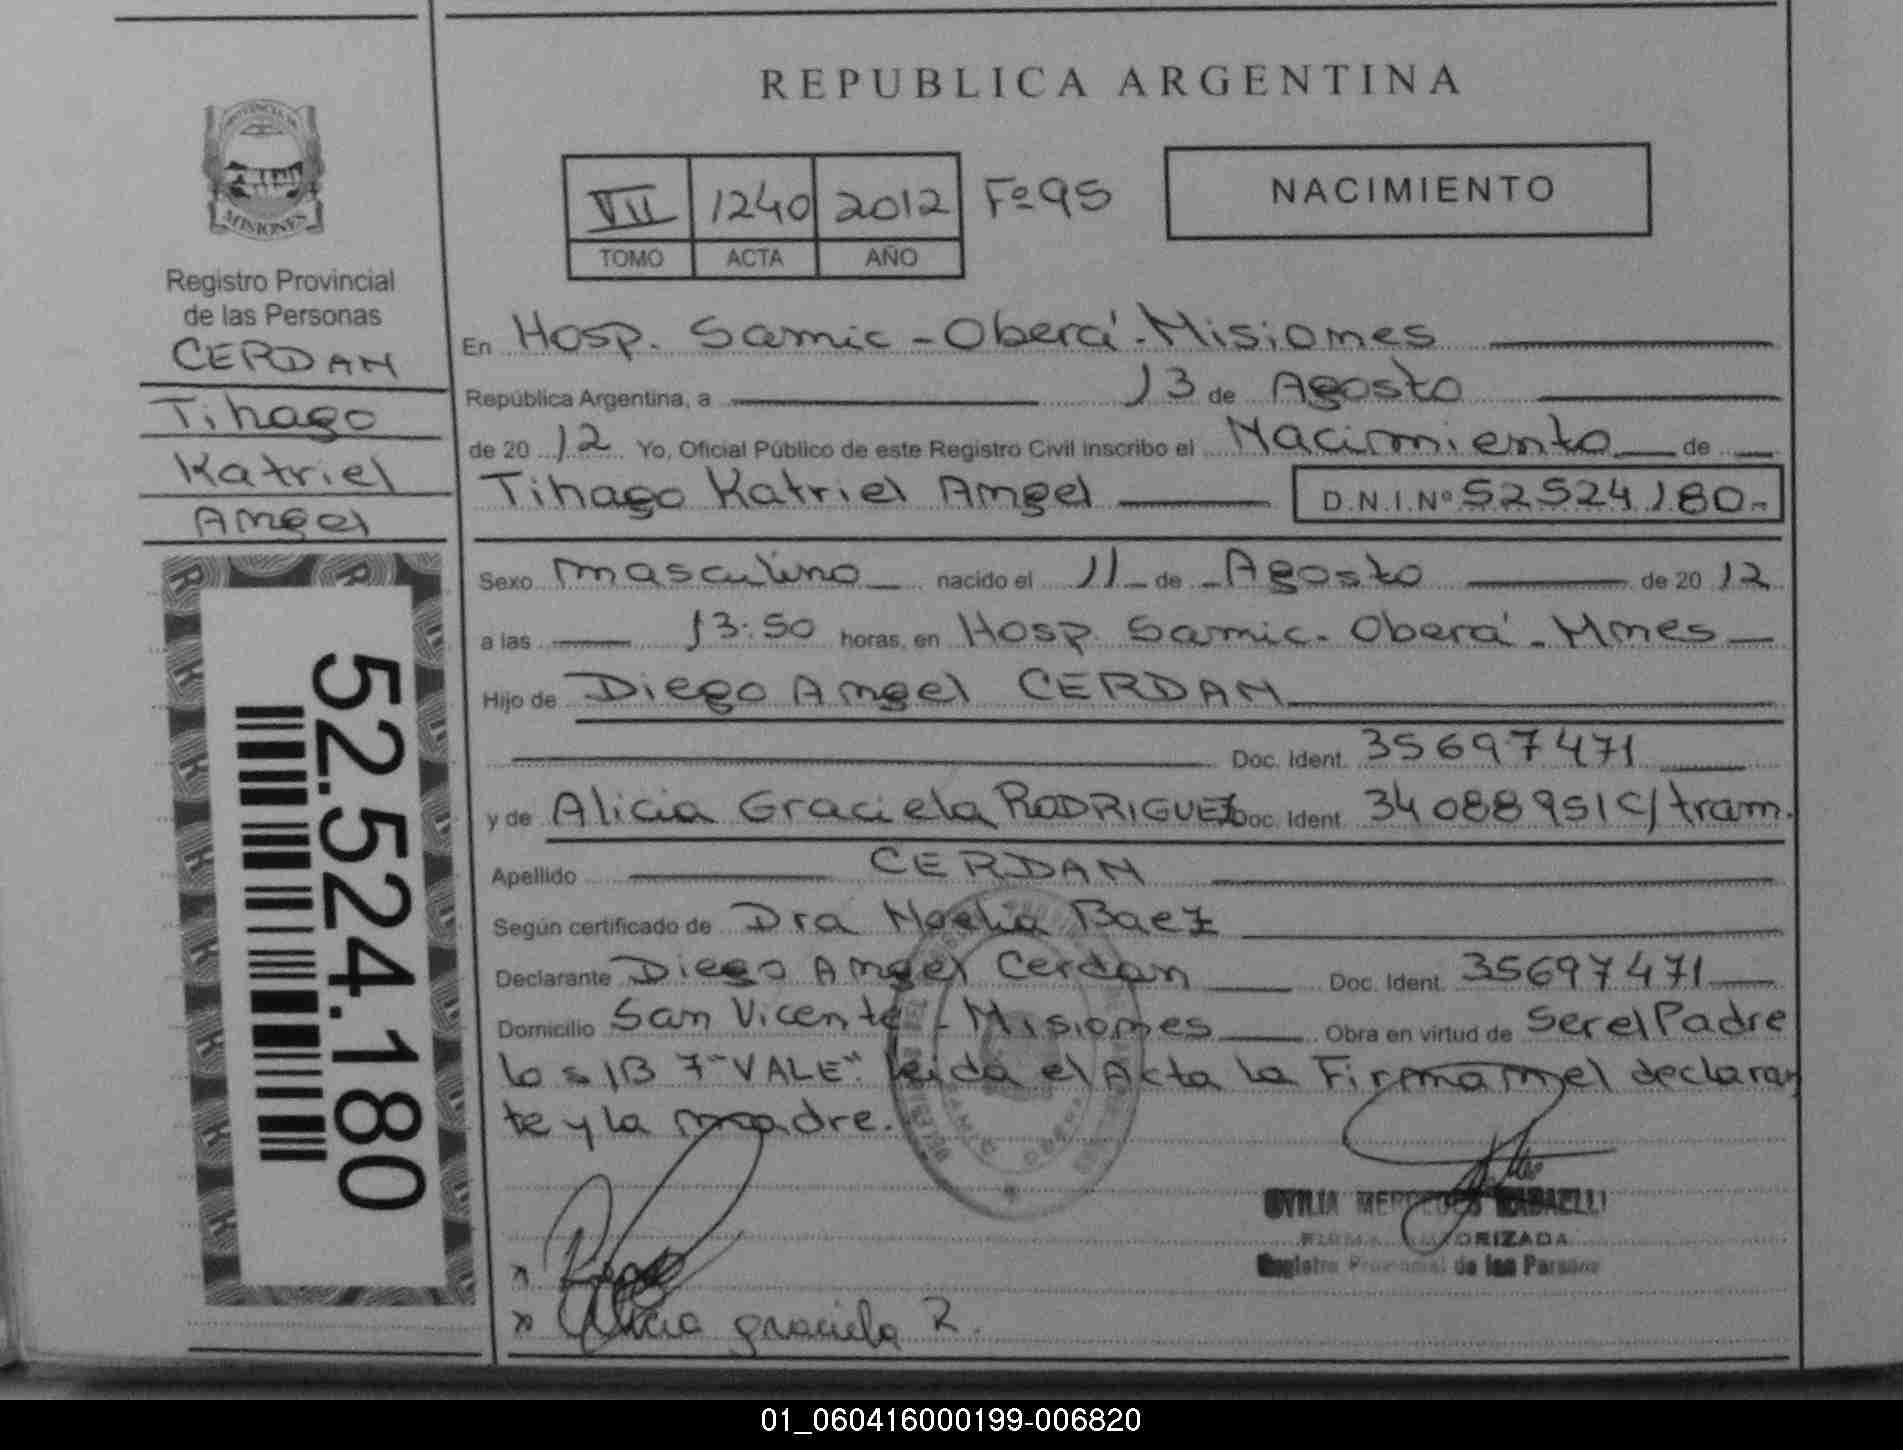 PROVINCIA DE
MISIONES
Registro Provincial
de las Personas
CERDAN
Tihago
Katriel
Angel
52.524.180
REPUBLICA ARGENTINA
VII 1240 2012 Fº 95
TOMO ACTA AÑO
NACIMIENTO
En Hosp. Samic - Oberá - Misiones
República Argentina, a 13 de Agosto
de 20 12 Yo, Oficial Público de este Registro Civil inscribo el Nacimiento de
Tihago Katriel Angel D.N.I.Nº 52524180.-
Sexo masculino nacido el 11 de Agosto de 20 12
a las 13:50 horas, en Hosp. Samic - Oberá - Mnes
Hijo de Diego Angel CERDAN
Doc. Ident. 35697471
y de Alicia Graciela RODRIGUEZ Doc. Ident. 34088951 C/tram.
Apellido CERDAN
Según certificado de Dra Noelia Baez
Declarante Diego Angel Cerdan Doc. Ident. 35697471
Domicilio San Vicente - Misiones Obra en virtud de Ser el Padre
"VALE". leida el Acta la Firman el declaran
te y la madre.
MERCEDES
FIRMA AUTORIZADA
Registro Provincial de las Personas
Alicia graciela R.
01_060416000199-006820